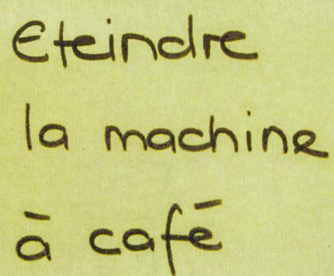 Eteindre
la machine
à café